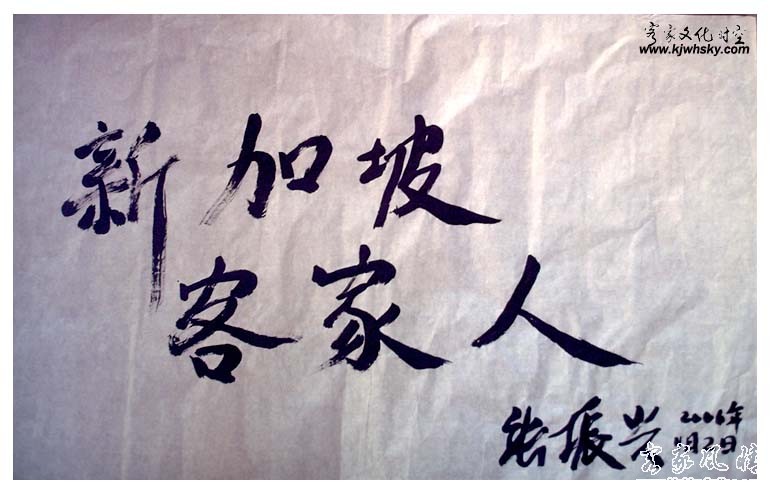 客家文化时空
www.kjwhsky.com
新加坡
客家人
张振兴
2006年
月2日
客家风情